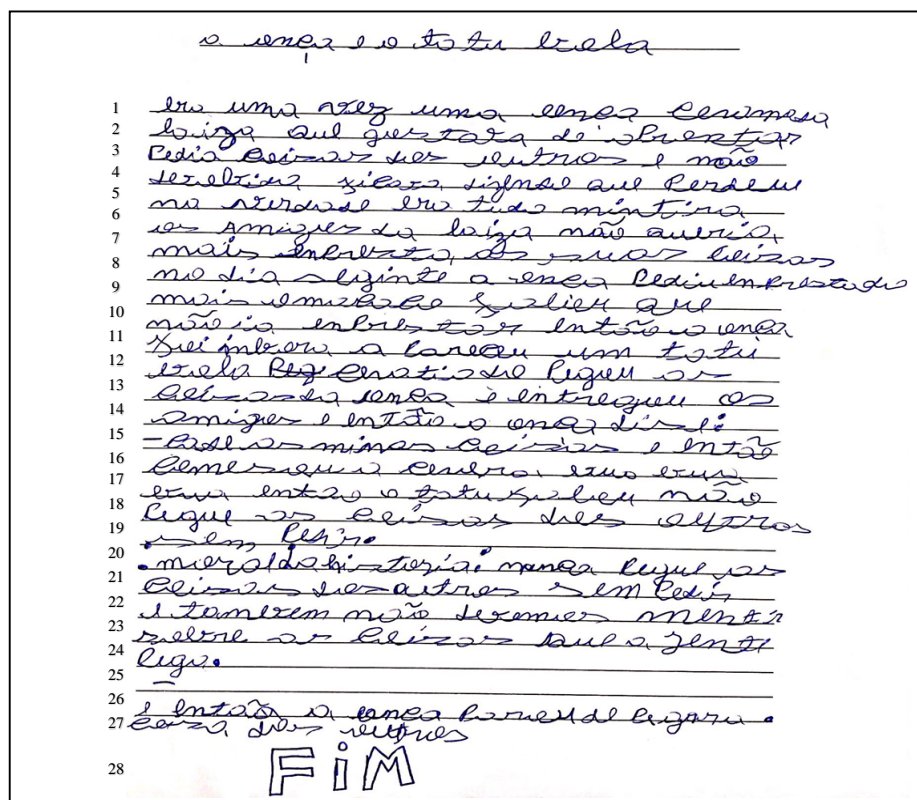 a onça e o tatu bola
1 era uma vez uma onça
2 laiza que gostava de
3 Pedia coizas dos outros e não
4 dizendo que Perdeu
5 na verdade era tudo mintira
6 os amigos da laiza não queria
7 mais as suas coizas
8 no dia siginte a onça Pediu enprestado
9 mais o macaco falou que
10 não ia enbrestar então a onça
11 foi inbora a um tatu
12 bola Pegou as
13 coizas da onça e entregou os
14 amigos e então a onça disse:
15 - cade as minas coizas e então
16 comesou a
17 então o tatu falou não
18 Pegue as coizas dos outros
19 sem Pedir.
20 .moral da historia: nunca Pegue as
21 coizas dos outros sem Pedir
22 e tambem não devemos mentir
23 sobre as coizas que a Jente
24 Pega.
25
26 e então a onça Parou de Pegar a
27 coiza dos outros
28 FiM